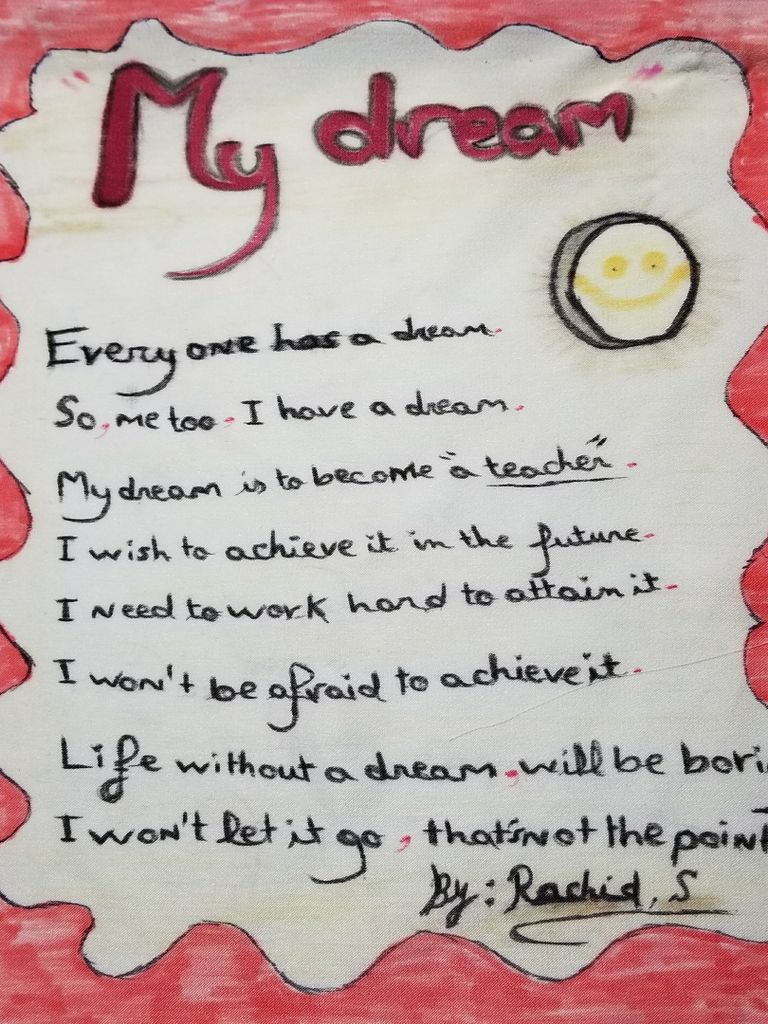 My dream
Everyone has a dream.
So, me too. I have a dream.
My dream is to become "a teacher".
I wish to achieve it in the future.
I need to work hard to attain it.
I won't be afraid to achieve it.
Life without a dream, will be bori
I won't let it go, that's not the point
By: Rachid. S